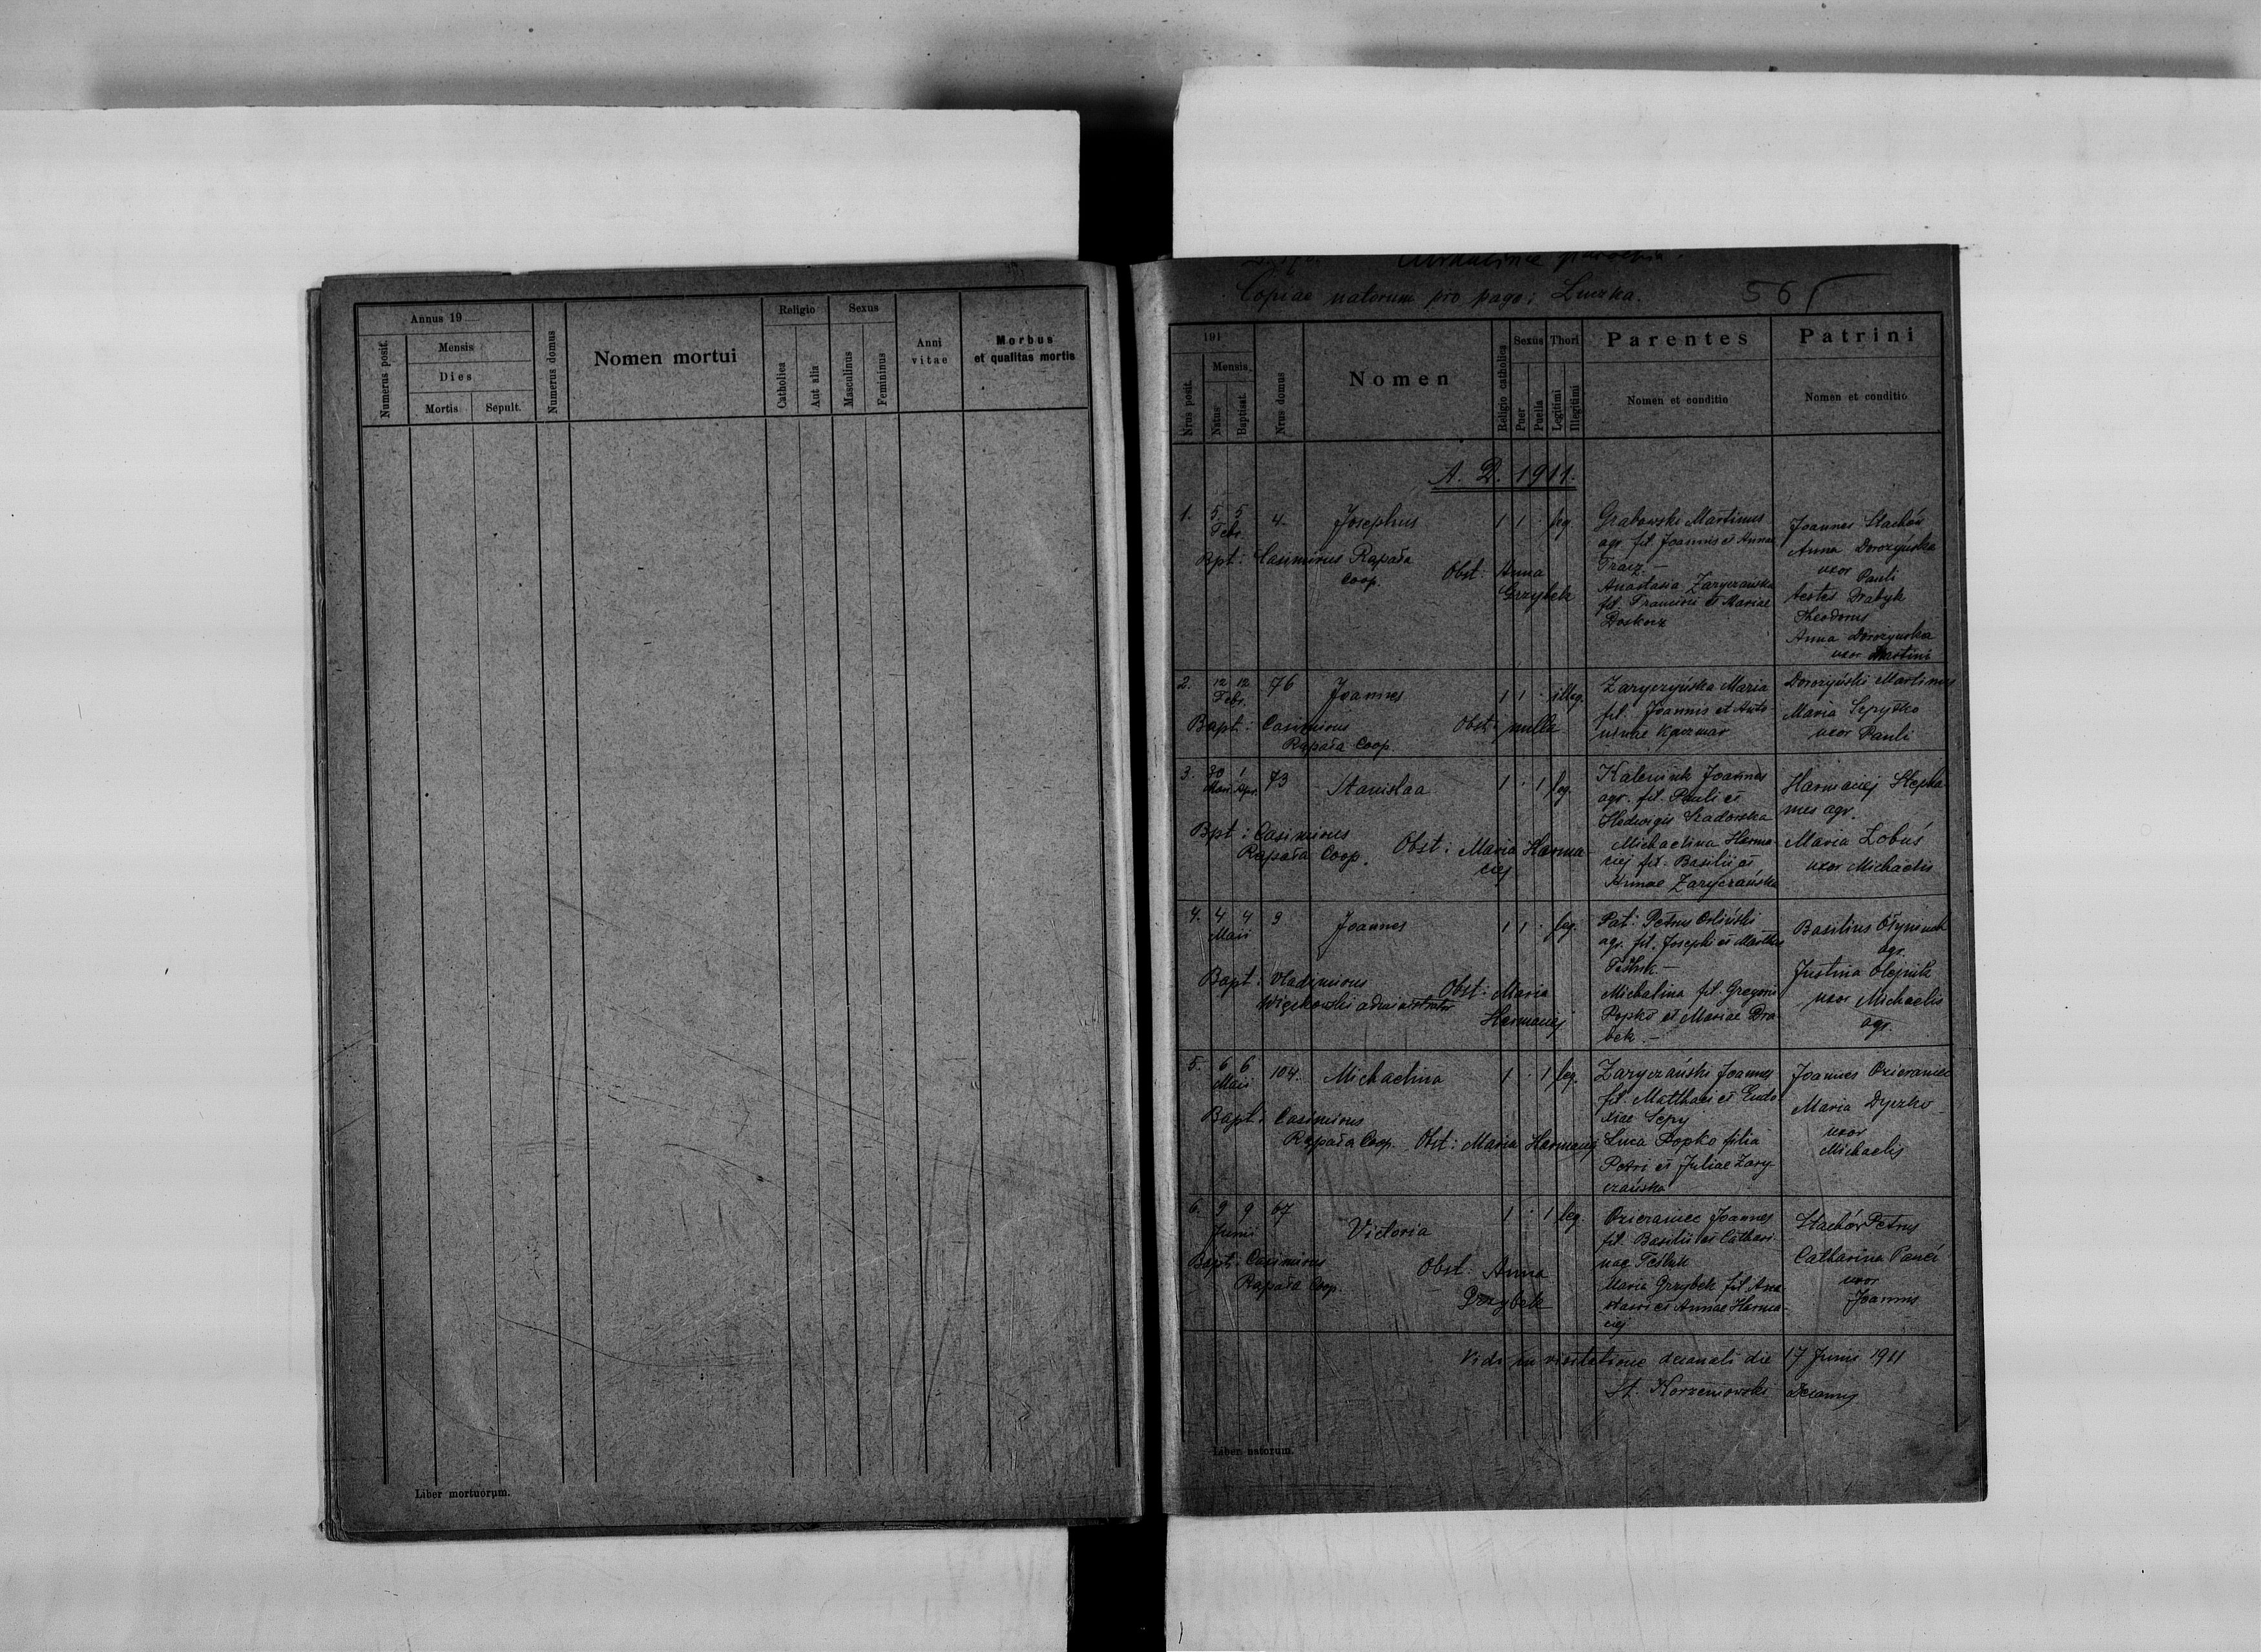 Annus 19
Numerus posit.
Mensis
Dies
Mortis
Sepult.
Numerus domus
Nomen mortui
Religio
Catholica
Aut alia
Sexus
Masculinus
Femininus
Anni
vitae
Morbus
et qualitas mortis
Liber mortuorum.
Copiae natorum pro pago: Luczka.
565
191
Nrus posit.
Mensis
Natus
Baptisat.
Nrus domus
Nomen
Religio catholica
Sexus
Puer
Puella
Thori
Legitimi
Illegitimi
Parentes
Nomen et conditio
Patrini
Nomen et conditio
A. D. 1911.
1. 5 5 4 Josephus 1 1 leg.
Febr.
Bpt: Casimirus Rapała
Coop.
Obst: Anna
Grzybek
Grabowski Martinus
agr. fil. Joannis et Annae
Tracz.—
Anastasia Zaryczańska
fil. Francisci et Mariae
Joannes Stachów
Anna Dorożyńska
uxor Pauli
testes Drabyk
Theodorus
Anna Dorożyńska
uxor Martini
2. 12 12 76 Joannes 1 1 illeg.
Febr.
Bapt: Casimirus
Rapała Coop.
Obst: nulla
Zaryczyńska Maria
fil. Joannis et Anto-
ninae Kaczmar
Dorożyński Martinus
Maria
uxor Pauli
3. 30 1 73 Stanislaa 1 1 leg.
Mart. Apr.
Bpt: Casimirus
Rapała Coop.
Obst: Maria Harma-
ciej
Joannes
agr. fil. Pauli et
Hedwigis
Michaelina Harma-
ciej fil. Basilii et
Annae Zaryczańska
Harmaciej Stepha-
nus agr.
Maria Łobuś
uxor Michaelis
4. 4 4 9 Joannes 1 1 leg.
Maii
Bapt: Vladimirus
Więckowski administrator
Obst: Maria
Harmaciej
Pat: Petrus Orliński
agr. fil. Josephi et Marthae
Teśluk.—
Michalina fil. Gregorii
Popko et Mariae Dra-
bek.—
Basilius
agr.
Justina Olejnik
uxor Michaelis
agr.
5. 6 6 104. Michaelina 1 1 leg.
Maii
Bapt: Casimirus
Rapała Coop. Obst: Maria Harmaciej
Zaryczański Joannes
fil. Matthaei et Eudo-
xiae Sepy
Luca Popko filia
Petri et Juliae Zary-
czańska
Joannes Ozieraniec
Maria Dyczko
uxor
Michaelis
6. 9 9 67 Victoria 1 1 leg.
Junii
Bapt: Casimirus
Rapała Coop.
Obst: Anna
Grzybek
Ozieraniec Joannes
fil. Basilii et Cathari-
nae Teśluk
Maria Grzybek fil. Ana-
stasii et Annae Harma-
ciej
Stachów Petrus
Catharina
uxor
Joannis
Vidi in visitatione decanali die 17 Junii 1911
St. Korzeniowski Decanus
Liber natorum.